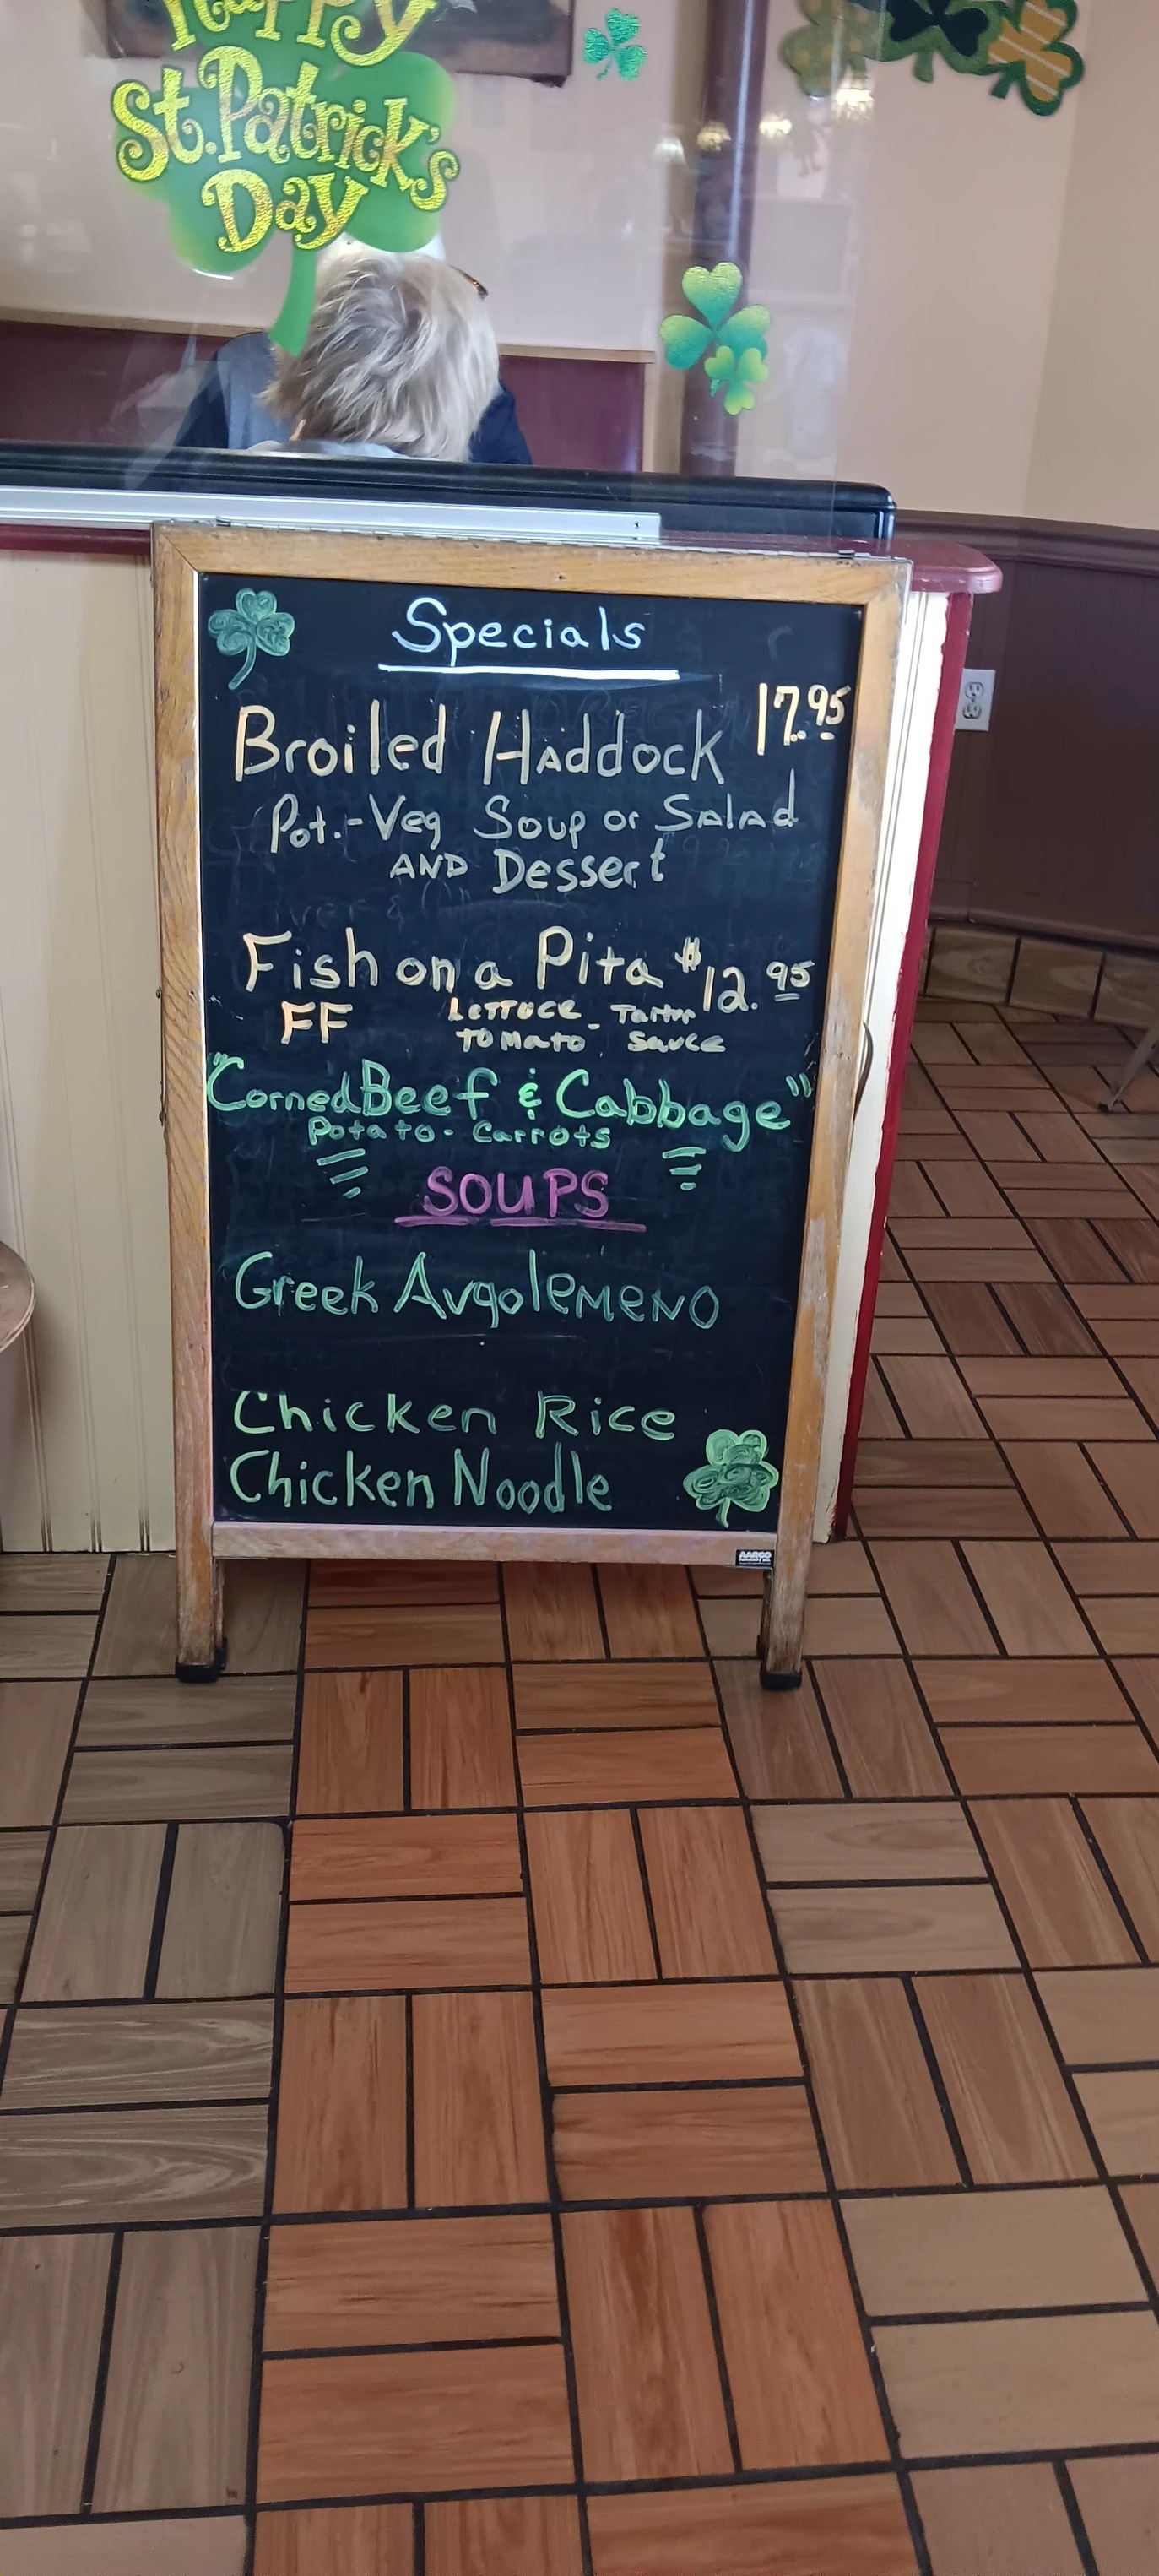 Happy
St. Patrick's
Day
Specials
Broiled Haddock 17.95
Pot.-Veg Soup or Salad
AND Dessert
Fish on a Pita $12.95
FF Lettuce - Tartar
Tomato Sauce
"Corned Beef & Cabbage"
Potato - Carrots
SOUPS
Greek Avgolemeno
Chicken Rice
Chicken Noodle
AARCO